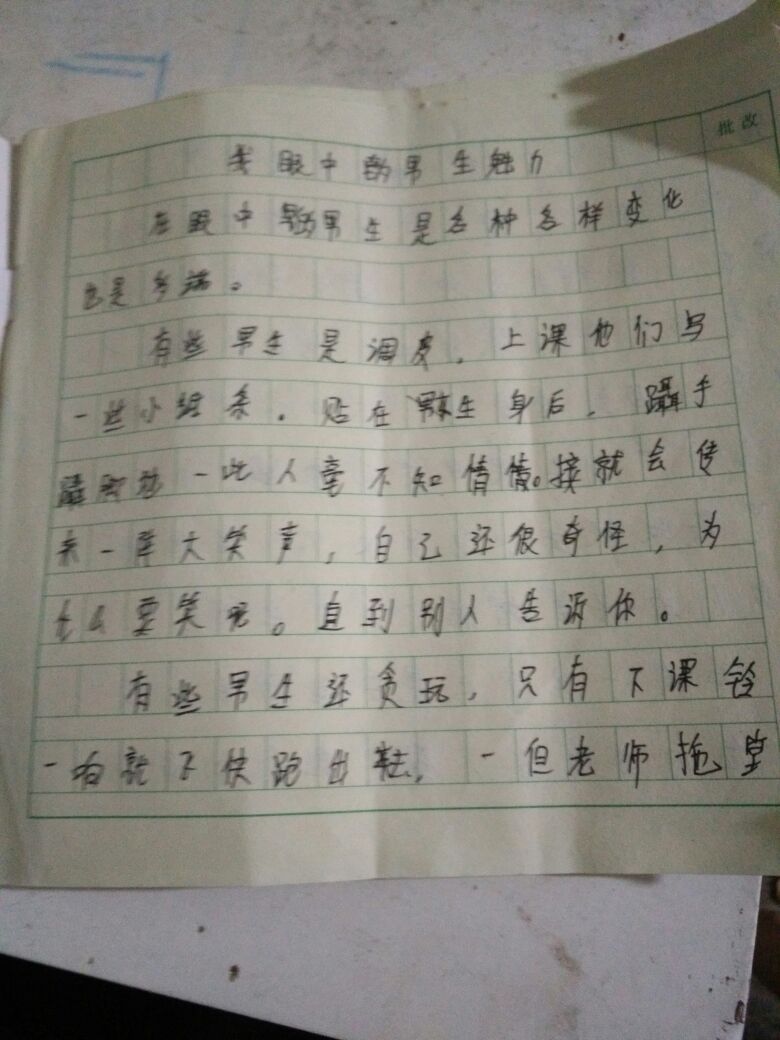 批改
我眼中的男生魅力
在眼中的男生是各种各样变化
也是多端。
有些男生是调皮，上课他们写
一些小纸条。贴在男生身后，蹑手
蹑脚 一此人毫不知情情。接就会传
来一阵大笑声，自己还很奇怪，为
什么要笑呢。直到别人告诉你。
有些男生还贪玩，只有下课铃
一向就飞快跑出，一但老师拖堂